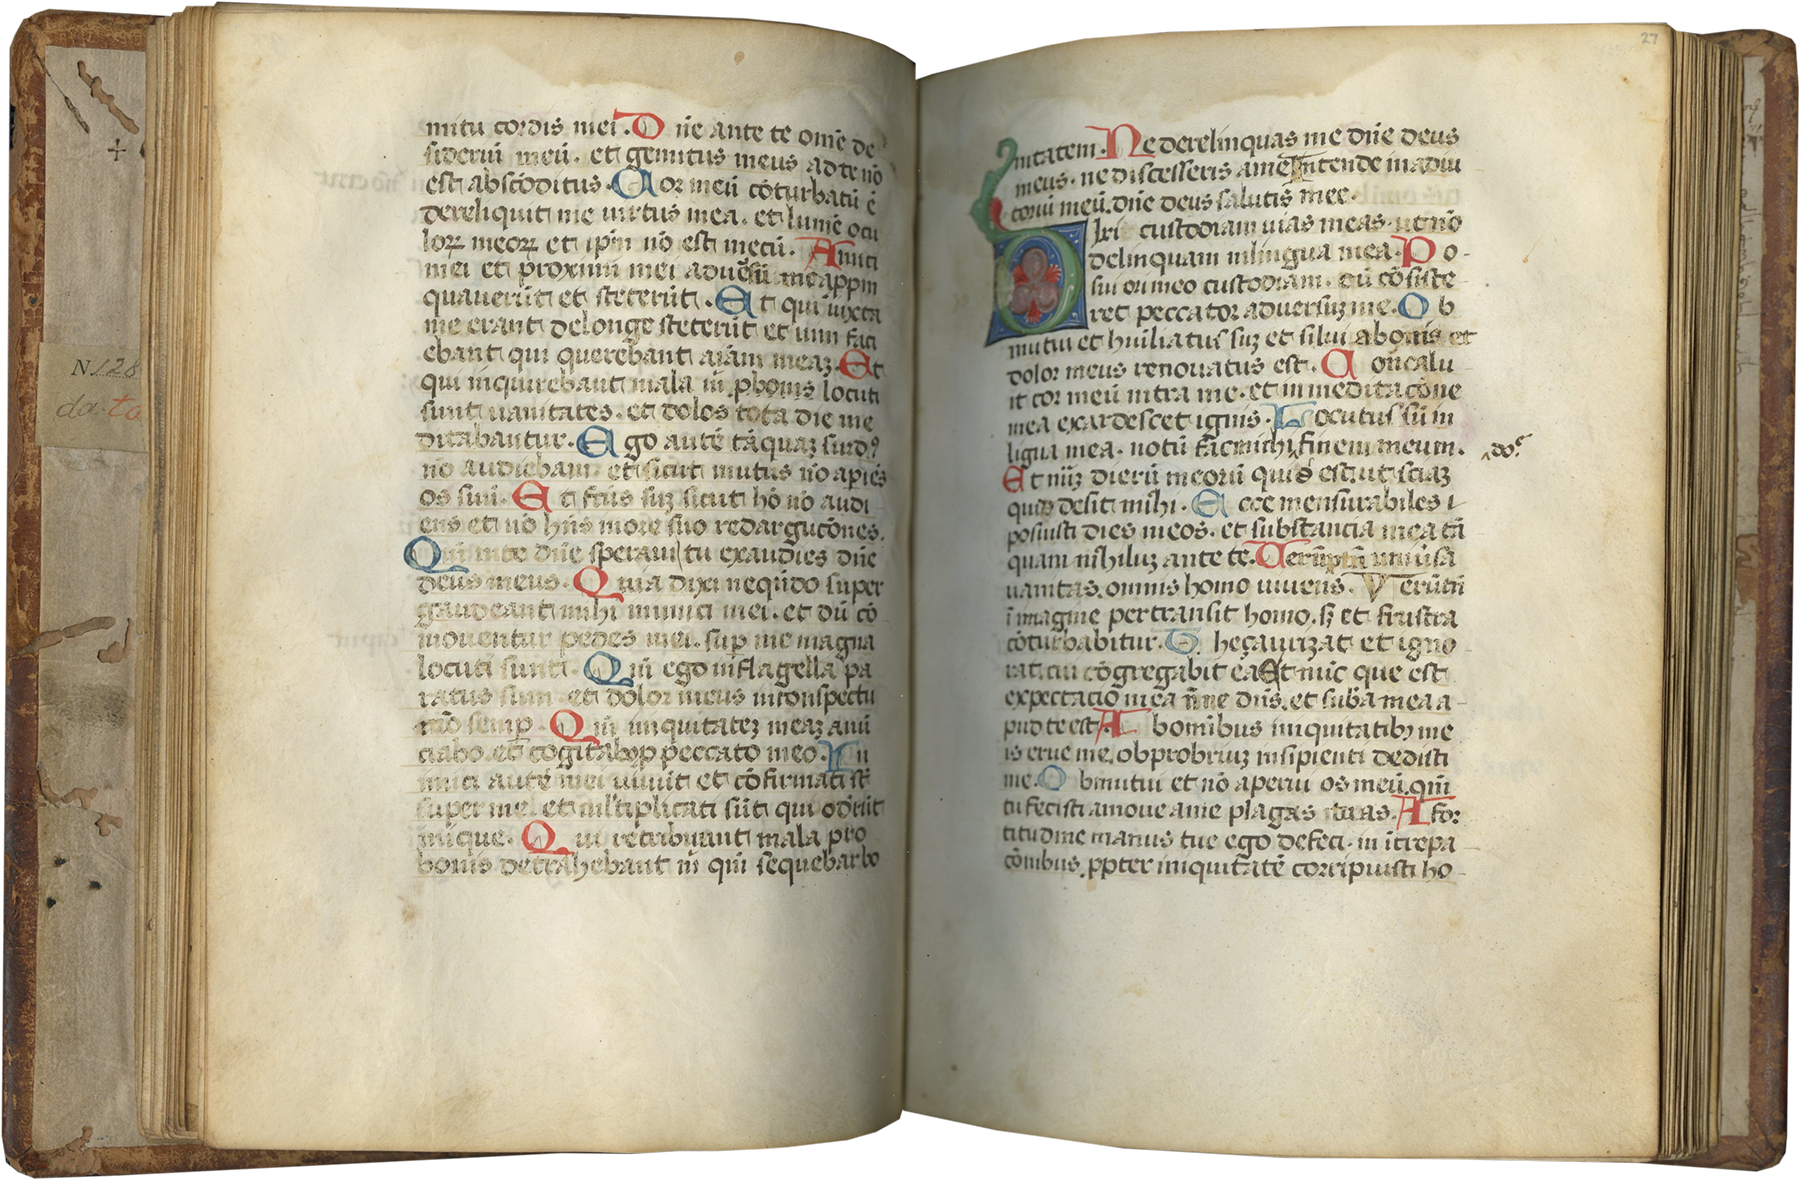 N. 128
da. ta
mitu cordis mei. D n̄e ante te om̄e de
sideriū meū. et gemitus meus ad te nō
est abscōditus. C or meū cōturbatū ē
dereliquit me uirtus mea. et lumē ocu
loꝝ meoꝝ et ip̄m nō est mecū. Amici
mei et proximi mei aduer̄sū me appm
quauerūt et steterūt. Et qui iuxta
me erant de longe steterūt et uim faci
ebant qui querebant aīam meaʒ. Et
qui inquirebant mala m̄ p bonis locuti
sunt uanitates. et dolos tota die me
ditabantur. Ego autē tāquaʒ surdꝰ
nō audiebam et sicut mutus nō apiēs
os suū. Et fc̄us suʒ sicut hō nō audi
ens et nō hn̄s i ore suo redargutōnes.
Qm̄ in te dn̄e speraui tu exaudies dn̄e
deus meus. Quia dixi nequādo super
gaudeant mihi inimici mei. et dū cō
mouentur pedes mei. sup me magna
locuti sunt. Qm̄ ego in flagella pa
ratus sum. et dolor meus in conspectu
meo semp. Qm̄ iniquitateʒ meaʒ anū
ciabo. et cogitabo p peccato meo. In
imici autē mei uiuūt et cōfirmati st̄
super me. et mltiplicati sūt qui oderūt
me inique. Qui retribuunt mala pro
bonis detrahebant m̄ qm̄ sequebar bo
27
nitatem. Ne derelinquas me dn̄e deus
meus. ne discesseris a me Intende in adiu
toriū meū. dn̄e deus salutis mee.
Dixi custodiam uias meas. ut nō
delinquam in lingua mea. Po-
sui ori meo custodiam. dū cōsiste
ret peccator aduersuʒ me. Ob
mutui et hūiliatus suʒ et silui a bonis et
dolor meus renouatus est. Concalu
it cor meū intra me. et in meditacōne
mea exardescet ignis. Locutus sū in
ligua mea. notū fac michi finem meum. dōe
Et nūʒ dierū meorū quis est ut sciaʒ
quid desit mihi. Ecce mensurabiles
posuisti dies meos. et substancia mea tā
quam nihiluʒ ante te. Uerūptn̄ uniūsa
uanitas. omnis homo uiuens. Verūtn̄
ī imagine pertransit homo. sʒ et frustra
cōturbabitur. Thecaurizat et igno
rat. cui cōgregabit ea Et nūc que est
expectacio mea n̄ne dn̄s. et sub̄a mea a-
pud te est. Ab omībus iniquitatibʒ me
is erue me. obprobriuʒ insipienti dedisti
me. Obmutui et nō aperui os meū. qm̄
tu fecisti amoue a me plagas tuas. A for
titudine manus tue ego defeci. in īcrepa
cōnibus. ppter iniquitatē corripuisti ho-